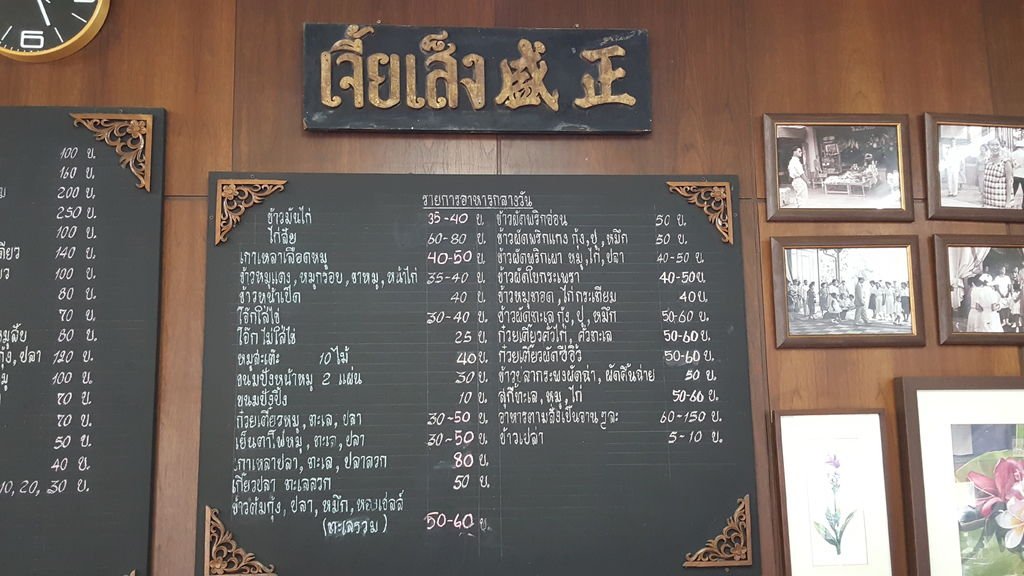 6
เจี้ยเส็ง 盛正
100 บ.
160 บ.
200 บ.
250 บ.
100 บ.
140 บ.
100 บ.
80 บ.
70 บ.
80 บ.
กุ้ง, ปลา 120 บ.
100 บ.
70 บ.
70 บ.
50 บ.
40 บ.
10, 20, 30 บ.
รายการอาหารกลางวัน
ข้าวมันไก่ 35-40 บ.
ไก่สับ 60-80 บ.
เกาเหลาเลือดหมู 40-50 บ.
ข้าวหมูแดง, หมูกรอบ, ขาหมู, หน้าไก่ 35-40 บ.
ข้าวหน้าเป็ด 40 บ.
โจ๊กใส่ไข่ 30-40 บ.
โจ๊กไม่ใส่ไข่ 25 บ.
หมูสะเต๊ะ 10 ไม้ 40 บ.
ขนมปังหน้าหมู 2 แผ่น 30 บ.
ขนมปังปิ้ง 10 บ.
ก๋วยเตี๋ยวหมู, ทะเล, ปลา 30-50 บ.
เย็นตาโฟหมู, ทะเล, ปลา 30-50 บ.
เกาเหลาปลา, ทะเล, ปลาลวก 80 บ.
เกี๊ยวปลา ทะเลลวก 50 บ.
ข้าวต้มกุ้ง, ปลา, หมึก, หอยเชลล์
(ทะเลรวม) 50-60 บ.
ข้าวผัดพริกอ่อน 50 บ.
ข้าวผัดพริกแกง กุ้ง, ปู, หมึก 50 บ.
ข้าวผัดพริกเผา หมู, ไก่, ปลา 40-50 บ.
ข้าวผัดใบกระเพรา 40-50 บ.
ข้าวหมูทอด, ไก่กระเทียม 40 บ.
ข้าวผัดทะเล กุ้ง, ปู, หมึก 50-60 บ.
ก๋วยเตี๋ยวคั่วไก่, คั่วทะเล 50-60 บ.
ก๋วยเตี๋ยวผัดซีอิ๊ว 50-60 บ.
ข้าวปลากระพงผัดฉ่า, ผัดคื่นฉ่าย 50 บ.
สุกี้ทะเล, หมู, ไก่ 50-60 บ.
อาหารตามสั่งเป็นจานๆละ 60-150 บ.
ข้าวเปล่า 5-10 บ.